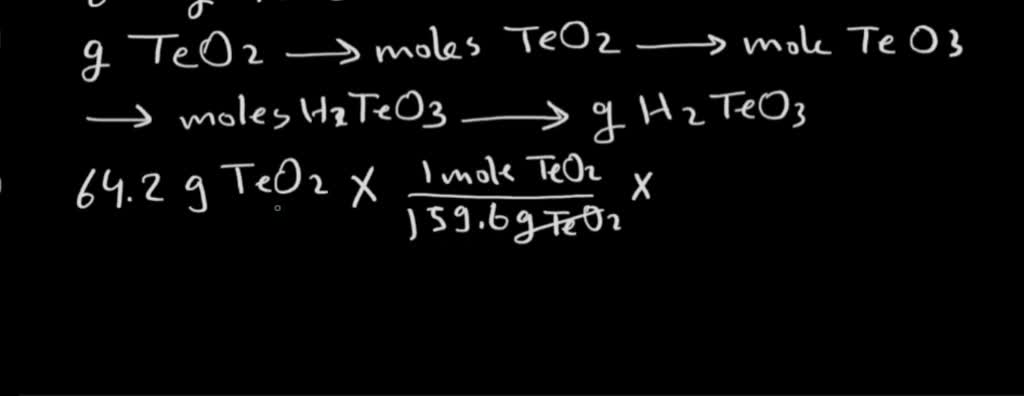 g TeO2 → moles TeO2 → mole TeO3
→ moles H2TeO3 → g H2TeO3
64.2 g TeO2 X 1 mole TeO2 / 159.6 g TeO2 X